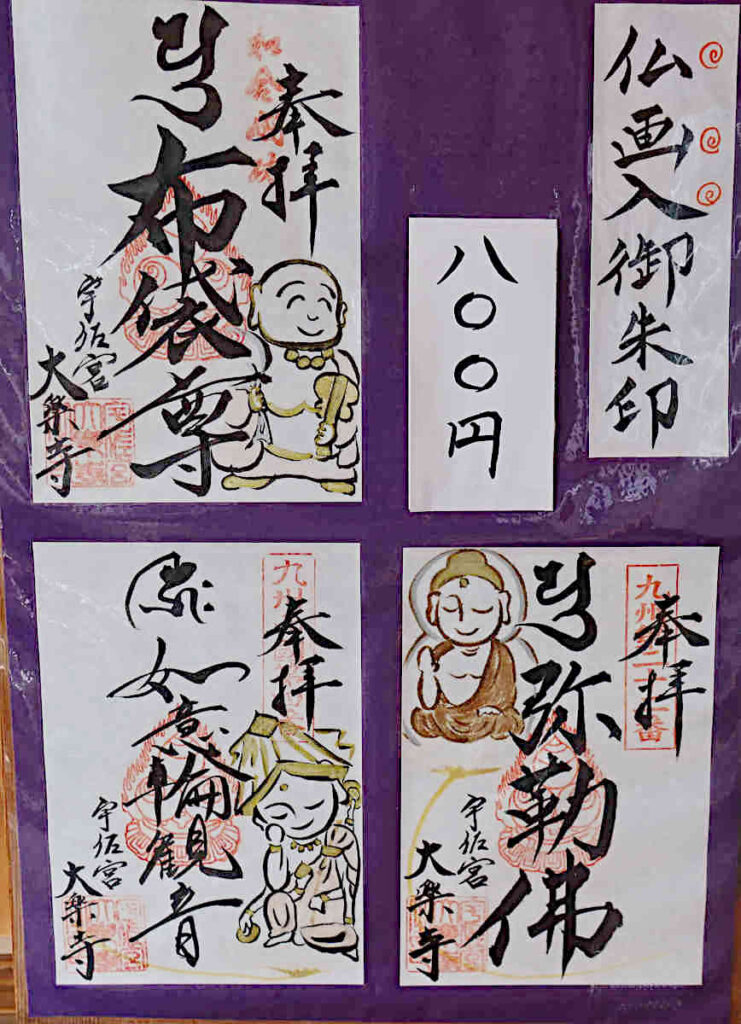 仏画入御朱印
八〇〇円
奉拝
布袋尊
宇佐宮
大楽寺
奉拝
弥勒佛
宇佐宮
大楽寺
奉拝
如意輪観音
宇佐宮
大楽寺